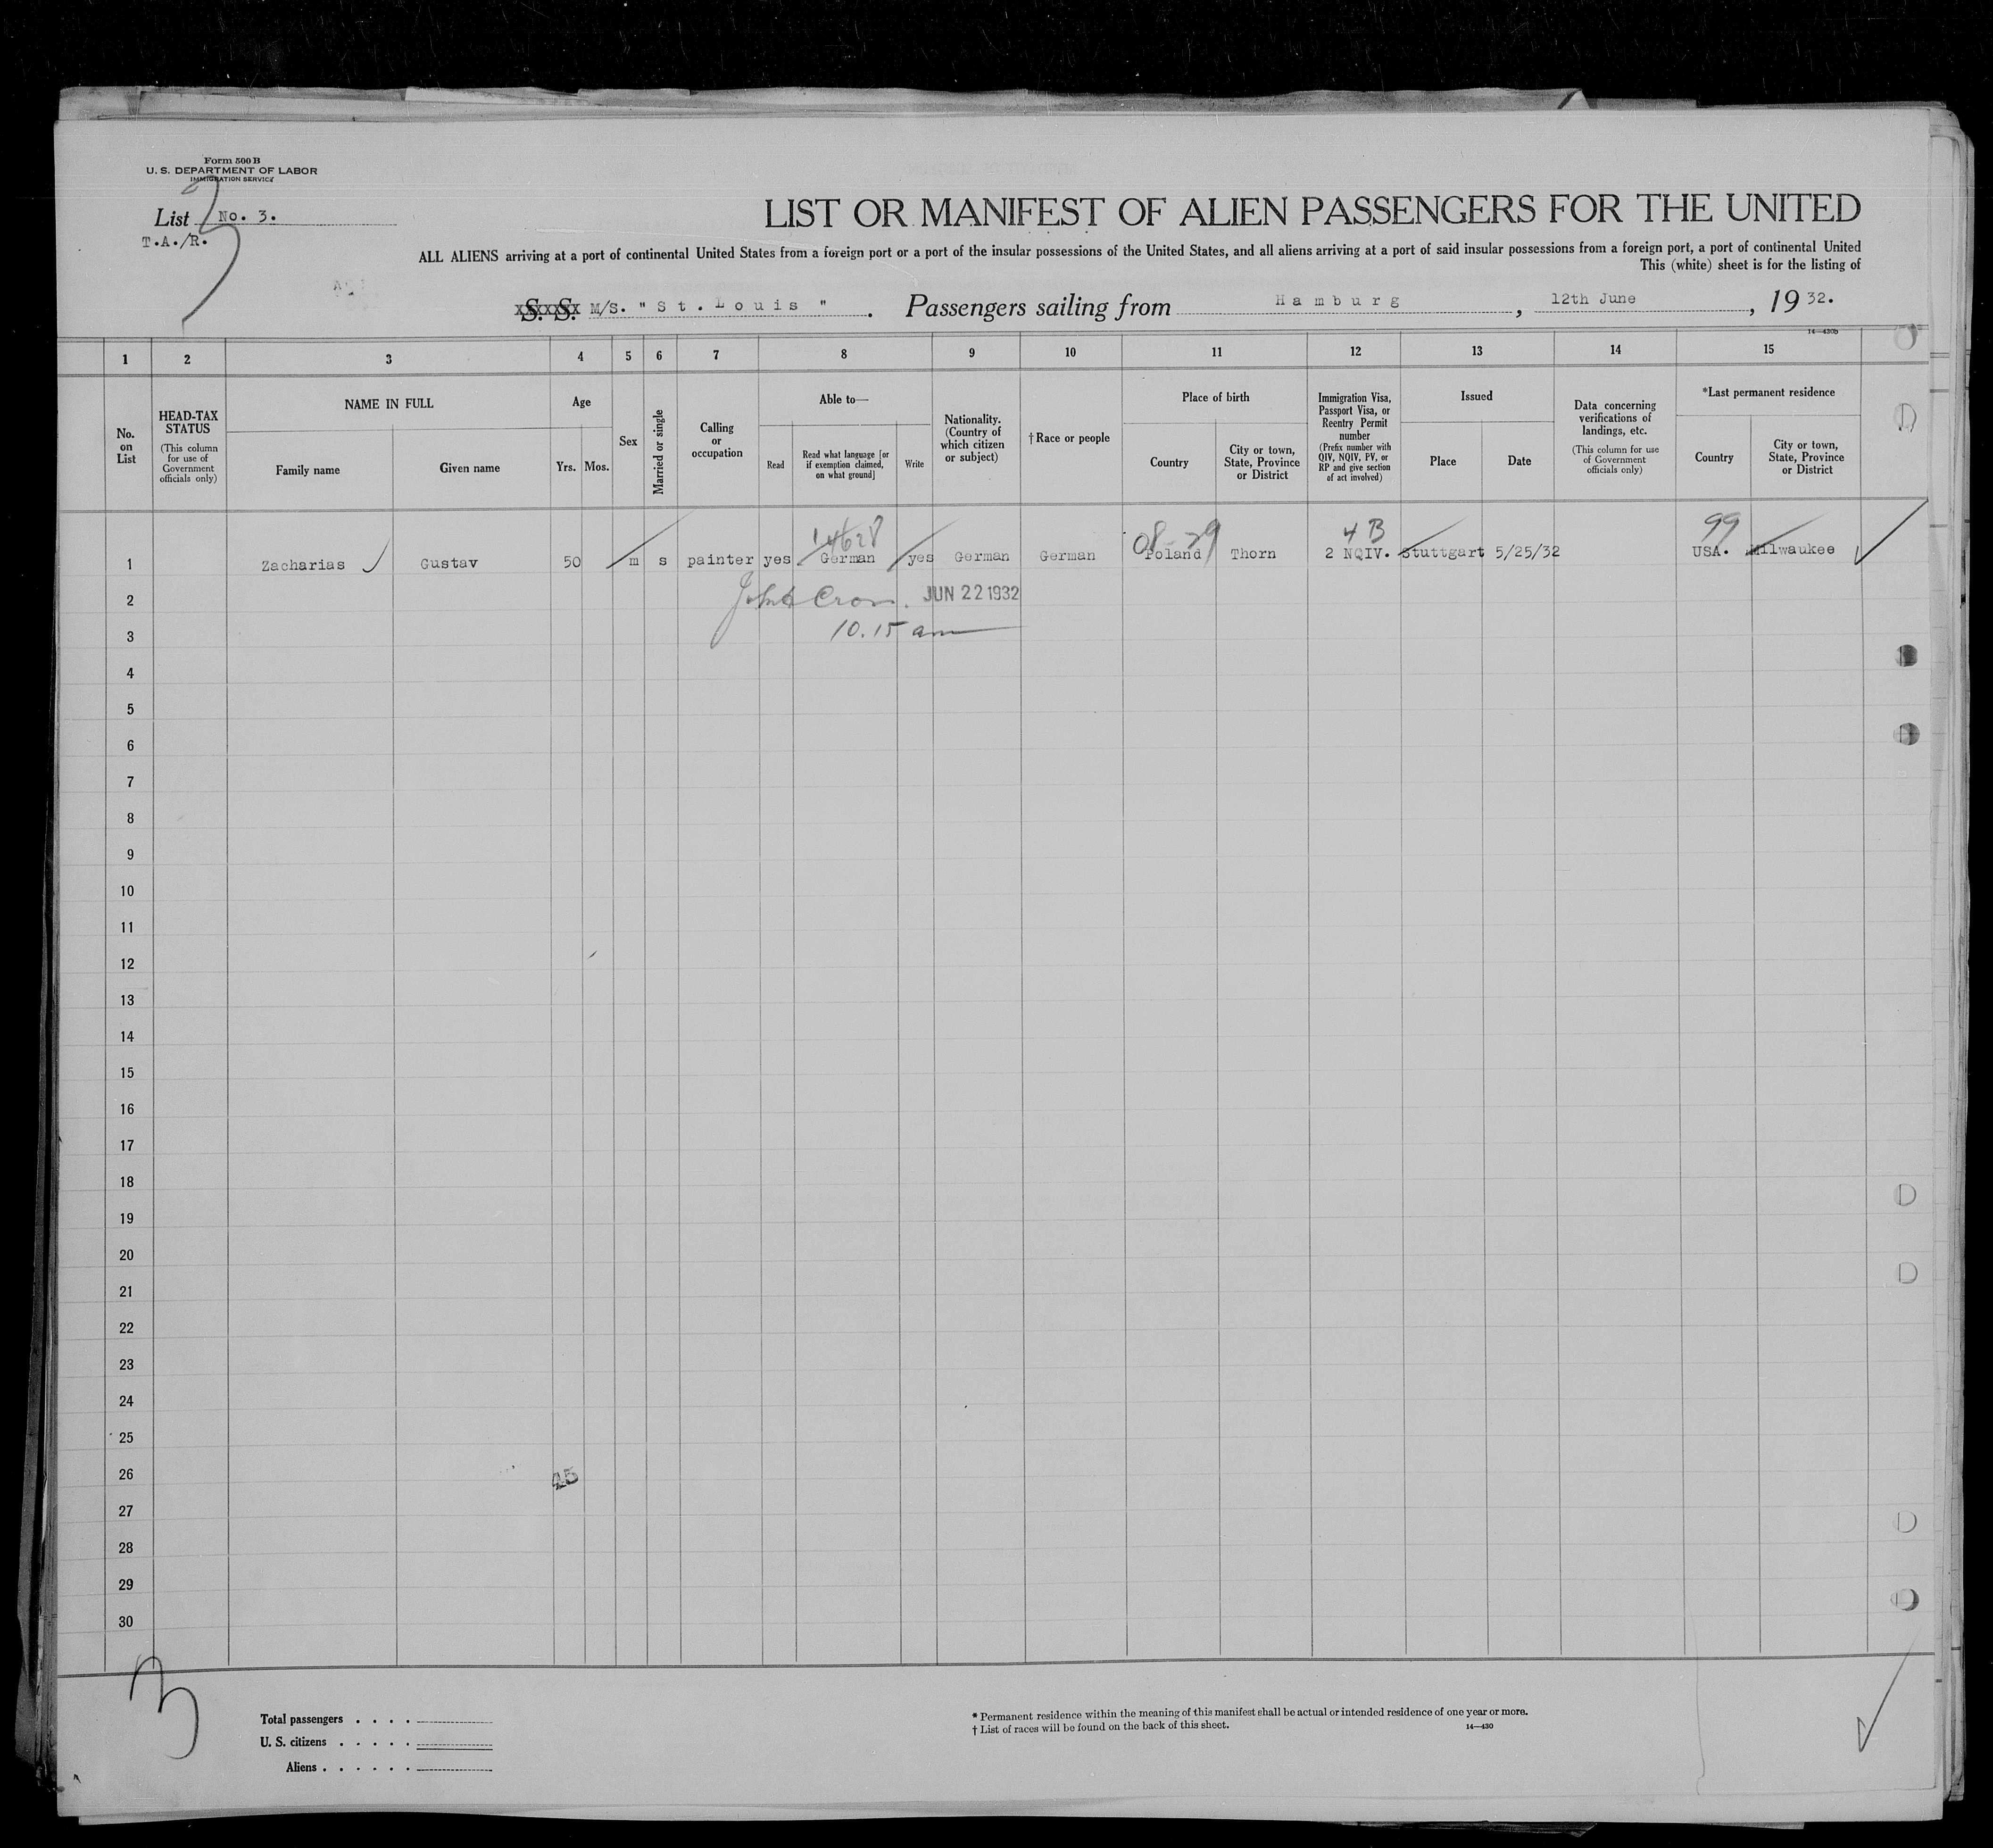 Form 500 B
U. S. DEPARTMENT OF LABOR
IMMIGRATION SERVICE
3
List No. 3.
T.A./R.
LIST OR MANIFEST OF ALIEN PASSENGERS FOR THE UNITED
ALL ALIENS arriving at a port of continental United States from a foreign port or a port of the insular possessions of the United States, and all aliens arriving at a port of said insular possessions from a foreign port, a port of continental United
This (white) sheet is for the listing of
S. S. M/S. " St. Louis " . Passengers sailing from Hamburg , 12th June , 19 32.
14—430b
1 2 3 4 5 6 7 8 9 10 11 12 13 14 15
No. on List
HEAD-TAX STATUS
(This column for use of Government officials only)
NAME IN FULL
Family name
Given name
Age
Yrs. Mos.
Sex
Married or single
Calling or occupation
Able to—
Read
Read what language [or if exemption claimed, on what ground]
Write
Nationality. (Country of which citizen or subject)
† Race or people
Place of birth
Country
City or town, State, Province or District
Immigration Visa, Passport Visa, or Reentry Permit number
(Prefix number with QIV, NQIV, PV, or RP and give section of act involved)
Issued
Place
Date
Data concerning verifications of landings, etc.
(This column for use of Government officials only)
*Last permanent residence
Country
City or town, State, Province or District
14628 08-29 4 B 99
1 Zacharias Gustav 50 m s painter yes German yes German German Poland Thorn 2 NQIV. Stuttgart 5/25/32 USA. Milwaukee
2 JUN 22 1932
3 10.15 am
4
5
6
7
8
9
10
11
12
13
14
15
16
17
18
19
20
21
22
23
24
25
26 45
27
28
29
30
3
Total passengers . . . .
U. S. citizens . . . . .
Aliens . . . . . .
* Permanent residence within the meaning of this manifest shall be actual or intended residence of one year or more.
† List of races will be found on the back of this sheet.
14—430